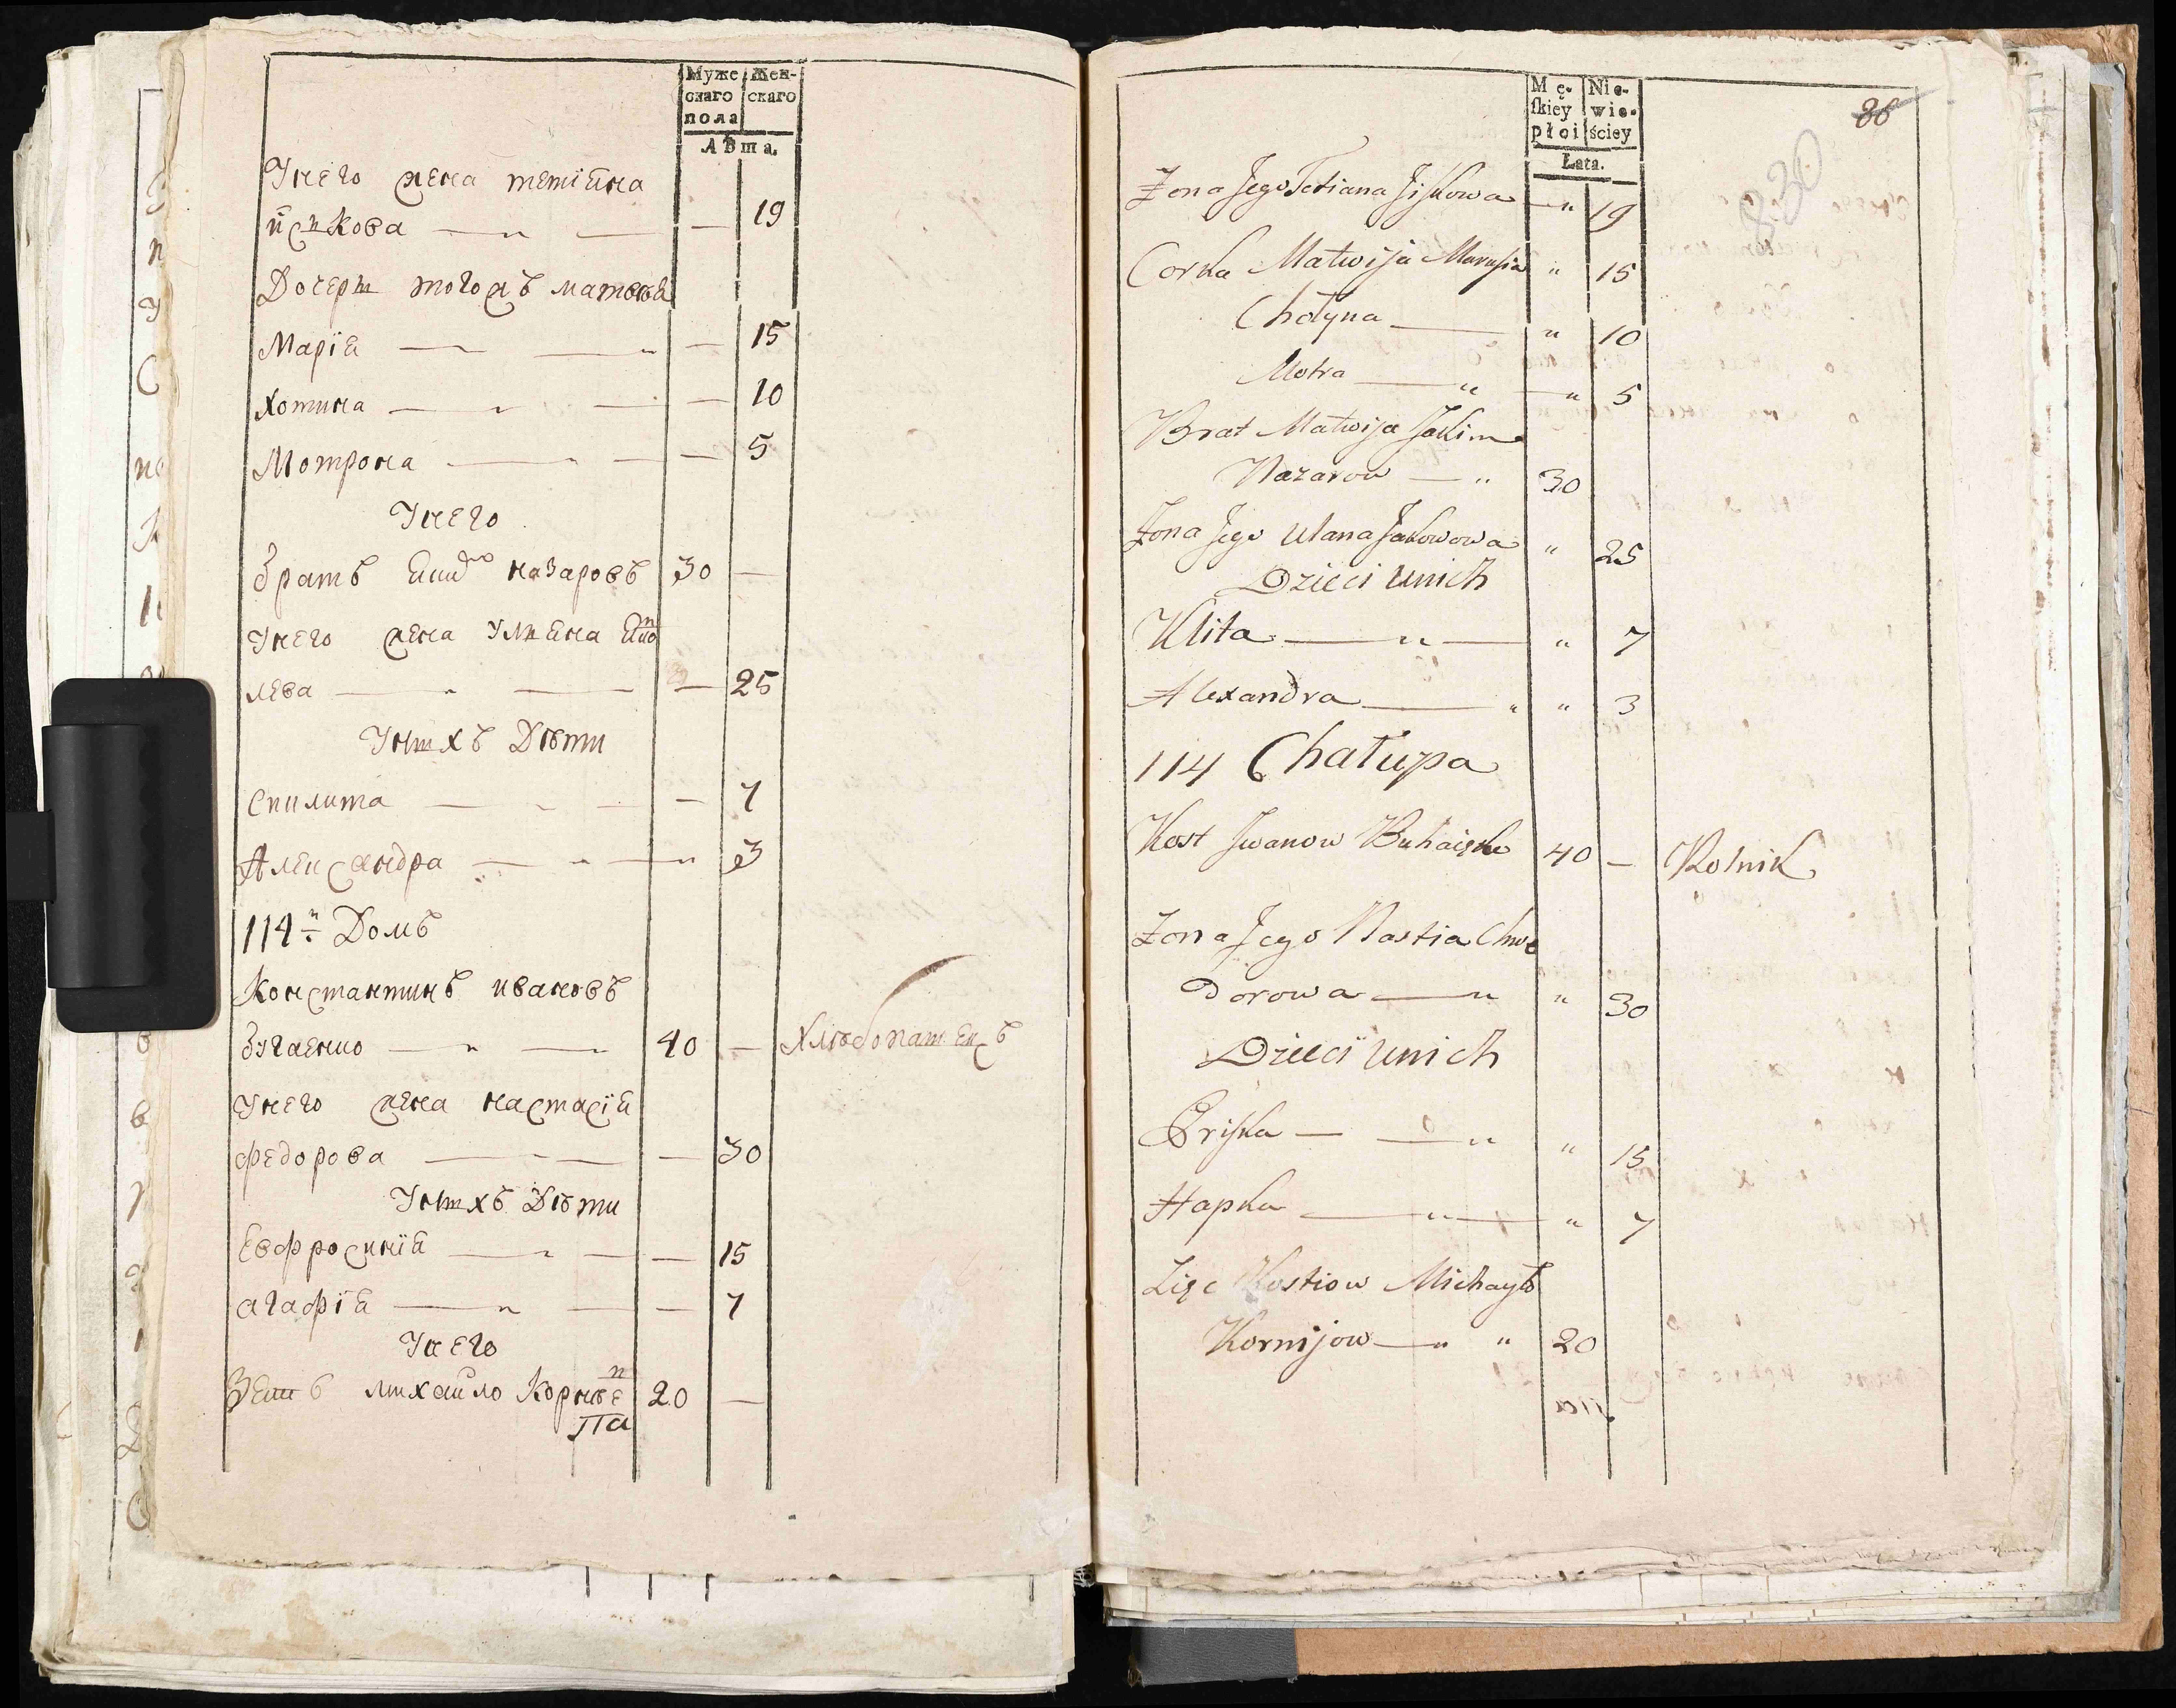 Муже
скаго
пола
Жен-
скаго
Лѣта.
Унего жена тетіана
19
Дочери тогожъ матвѣя
Маріа — „ — — „ — 15
Хотина — „ — — 10
Мотрона — „ — — 5
Унего
братъ назаровъ 30 —
Унего жена Улиана
лева — „ — — 25
Унихъ Дѣти
7
Александра — „ — „ 3
114й Домъ
Константинъ ивановъ
бугаенко — „ — 40 — Хлѣбопашецъ
Унего жена настасіа
федорова — „ — — 30
Унихъ Дѣти
Евфросиніа — „ — — 15
агафіа — „ — — 7
Унего
Зять михаило Корнѣе 20 —
Mę-
ſkiey
płci
Nie-
wie-
ściey
Łata.
86
830
Zona Jego Tetiana Jiſkowa — „ 19
Corka Matwija Marusia „ 15
Chotyna — „ 10
Motra — „ — „ 5
Brat Matwija Jakim
Nazarow — „ 30
Zona Jego Ulana Jakowowa „ 25
Dzieci Unich
Klita — „ — „ 7
Alexandra — „ „ 3
114 Chałupa
Kost Jwanow 40 — Rolnik
Zona Jego Nastia Chwe
dorowa — „ „ 30
Dzieci Unich
Priſka — — „ „ 15
Hapka — „ — „ 7
Zięć Kostiow Michayło
Kornijow — „ „ 20